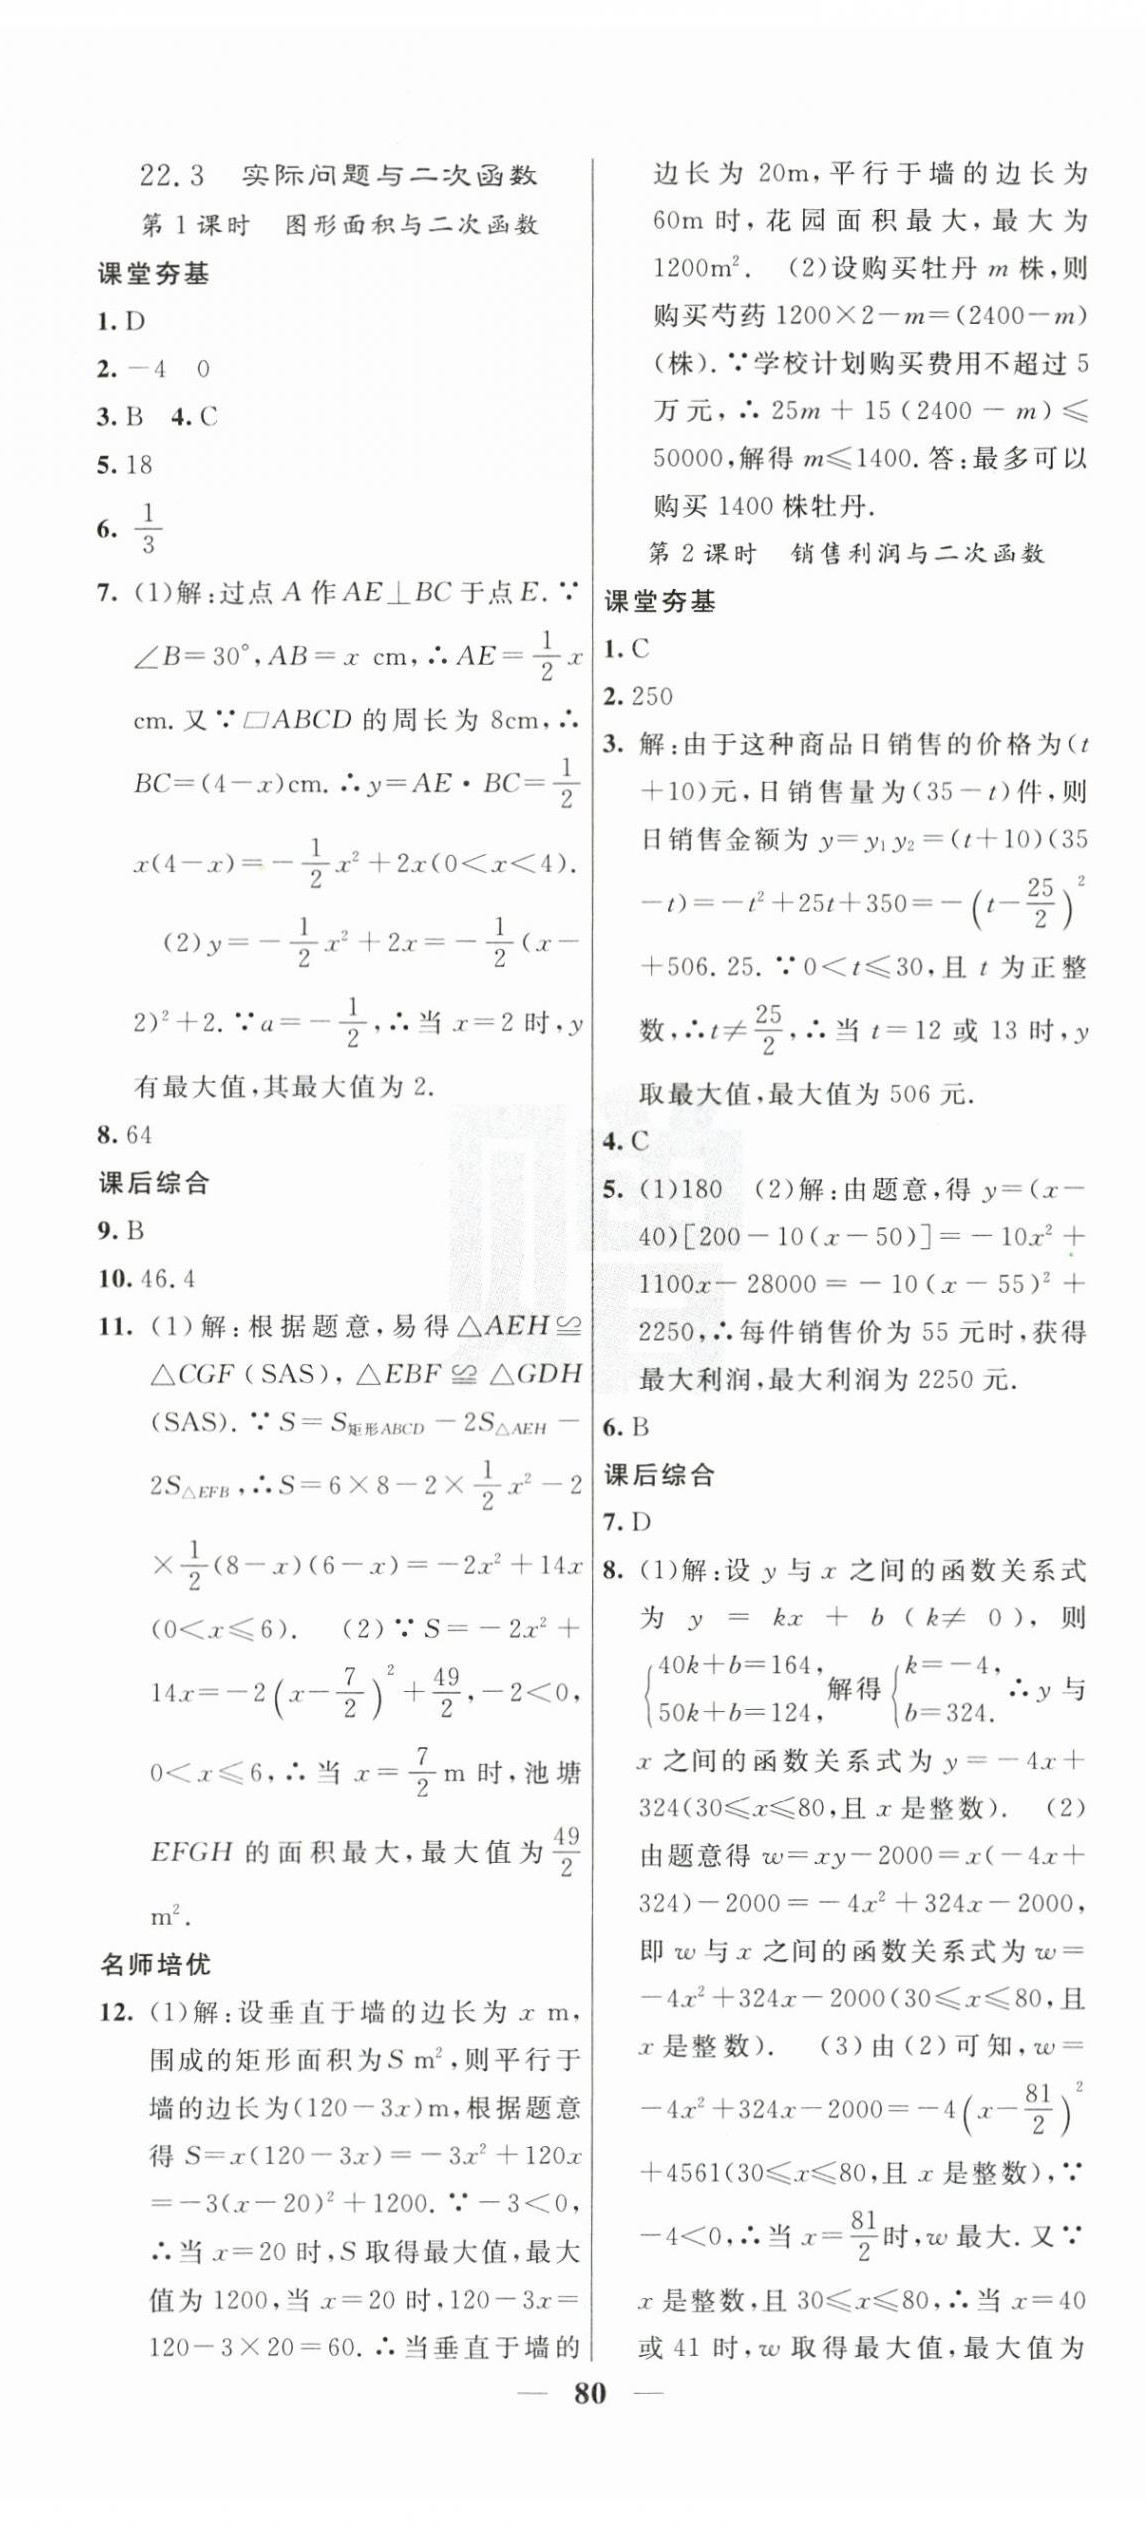 22.3 实际问题与二次函数
第1课时 图形面积与二次函数
课堂夯基
1. D
2. －4 0
3. B 4. C
5. 18
6. 1/3
7. (1)解:过点 A 作 AE⊥BC 于点 E. ∵
∠B=30°,AB=x cm,∴AE=1/2 x
cm. 又∵▱ABCD 的周长为 8cm,∴
BC=(4－x)cm. ∴y=AE·BC=1/2
x(4－x)=－1/2 x²＋2x(0＜x＜4).
(2)y=－1/2 x²＋2x=－1/2(x－
2)²＋2. ∵a=－1/2,∴当 x=2 时,y
有最大值,其最大值为 2.
8. 64
课后综合
9. B
10. 46.4
11. (1)解:根据题意,易得△AEH≌
△CGF(SAS),△EBF≌△GDH
(SAS). ∵S=S矩形ABCD－2S△AEH－
2S△EFB,∴S=6×8－2×1/2 x²－2
×1/2(8－x)(6－x)=－2x²＋14x
(0＜x≤6). (2)∵S=－2x²＋
14x=－2(x－7/2)²＋49/2,－2＜0,
0＜x≤6,∴当 x=7/2 m 时,池塘
EFGH 的面积最大,最大值为 49/2
m².
名师培优
12. (1)解:设垂直于墙的边长为 x m,
围成的矩形面积为 S m²,则平行于
墙的边长为(120－3x)m,根据题意
得 S=x(120－3x)=－3x²＋120x
=－3(x－20)²＋1200. ∵－3＜0,
∴当 x=20 时,S 取得最大值,最大
值为 1200,当 x=20 时,120－3x=
120－3×20=60. ∴当垂直于墙的
边长为 20m,平行于墙的边长为
60m 时,花园面积最大,最大为
1200m². (2)设购买牡丹 m 株,则
购买芍药 1200×2－m=(2400－m)
(株). ∵学校计划购买费用不超过 5
万元,∴25m＋15(2400－m)≤
50000,解得 m≤1400. 答:最多可以
购买 1400 株牡丹.
第2课时 销售利润与二次函数
课堂夯基
1. C
2. 250
3. 解:由于这种商品日销售的价格为(t
＋10)元,日销售量为(35－t)件,则
日销售金额为 y=y₁y₂=(t＋10)(35
－t)=－t²＋25t＋350=－(t－25/2)²
＋506.25. ∵0＜t≤30,且 t 为正整
数,∴t≠25/2,∴当 t=12 或 13 时,y
取最大值,最大值为 506 元.
4. C
5. (1)180 (2)解:由题意,得 y=(x－
40)[200－10(x－50)]=－10x²＋
1100x－28000=－10(x－55)²＋
2250,∴每件销售价为 55 元时,获得
最大利润,最大利润为 2250 元.
6. B
课后综合
7. D
8. (1)解:设 y 与 x 之间的函数关系式
为 y = kx ＋ b (k≠ 0), 则
{40k＋b=164, 50k＋b=124, 解得 {k=－4, b=324. ∴y 与
x 之间的函数关系式为 y=－4x＋
324(30≤x≤80,且 x 是整数). (2)
由题意得 w=xy－2000=x(－4x＋
324)－2000=－4x²＋324x－2000,
即 w 与 x 之间的函数关系式为 w=
－4x²＋324x－2000(30≤x≤80,且
x 是整数). (3)由(2)可知,w=
－4x²＋324x－2000=－4(x－81/2)²
＋4561(30≤x≤80,且 x 是整数),∵
－4＜0,∴当 x=81/2 时,w 最大. 又∵
x 是整数,且 30≤x≤80,∴当 x=40
或 41 时,w 取得最大值,最大值为
— 80 —